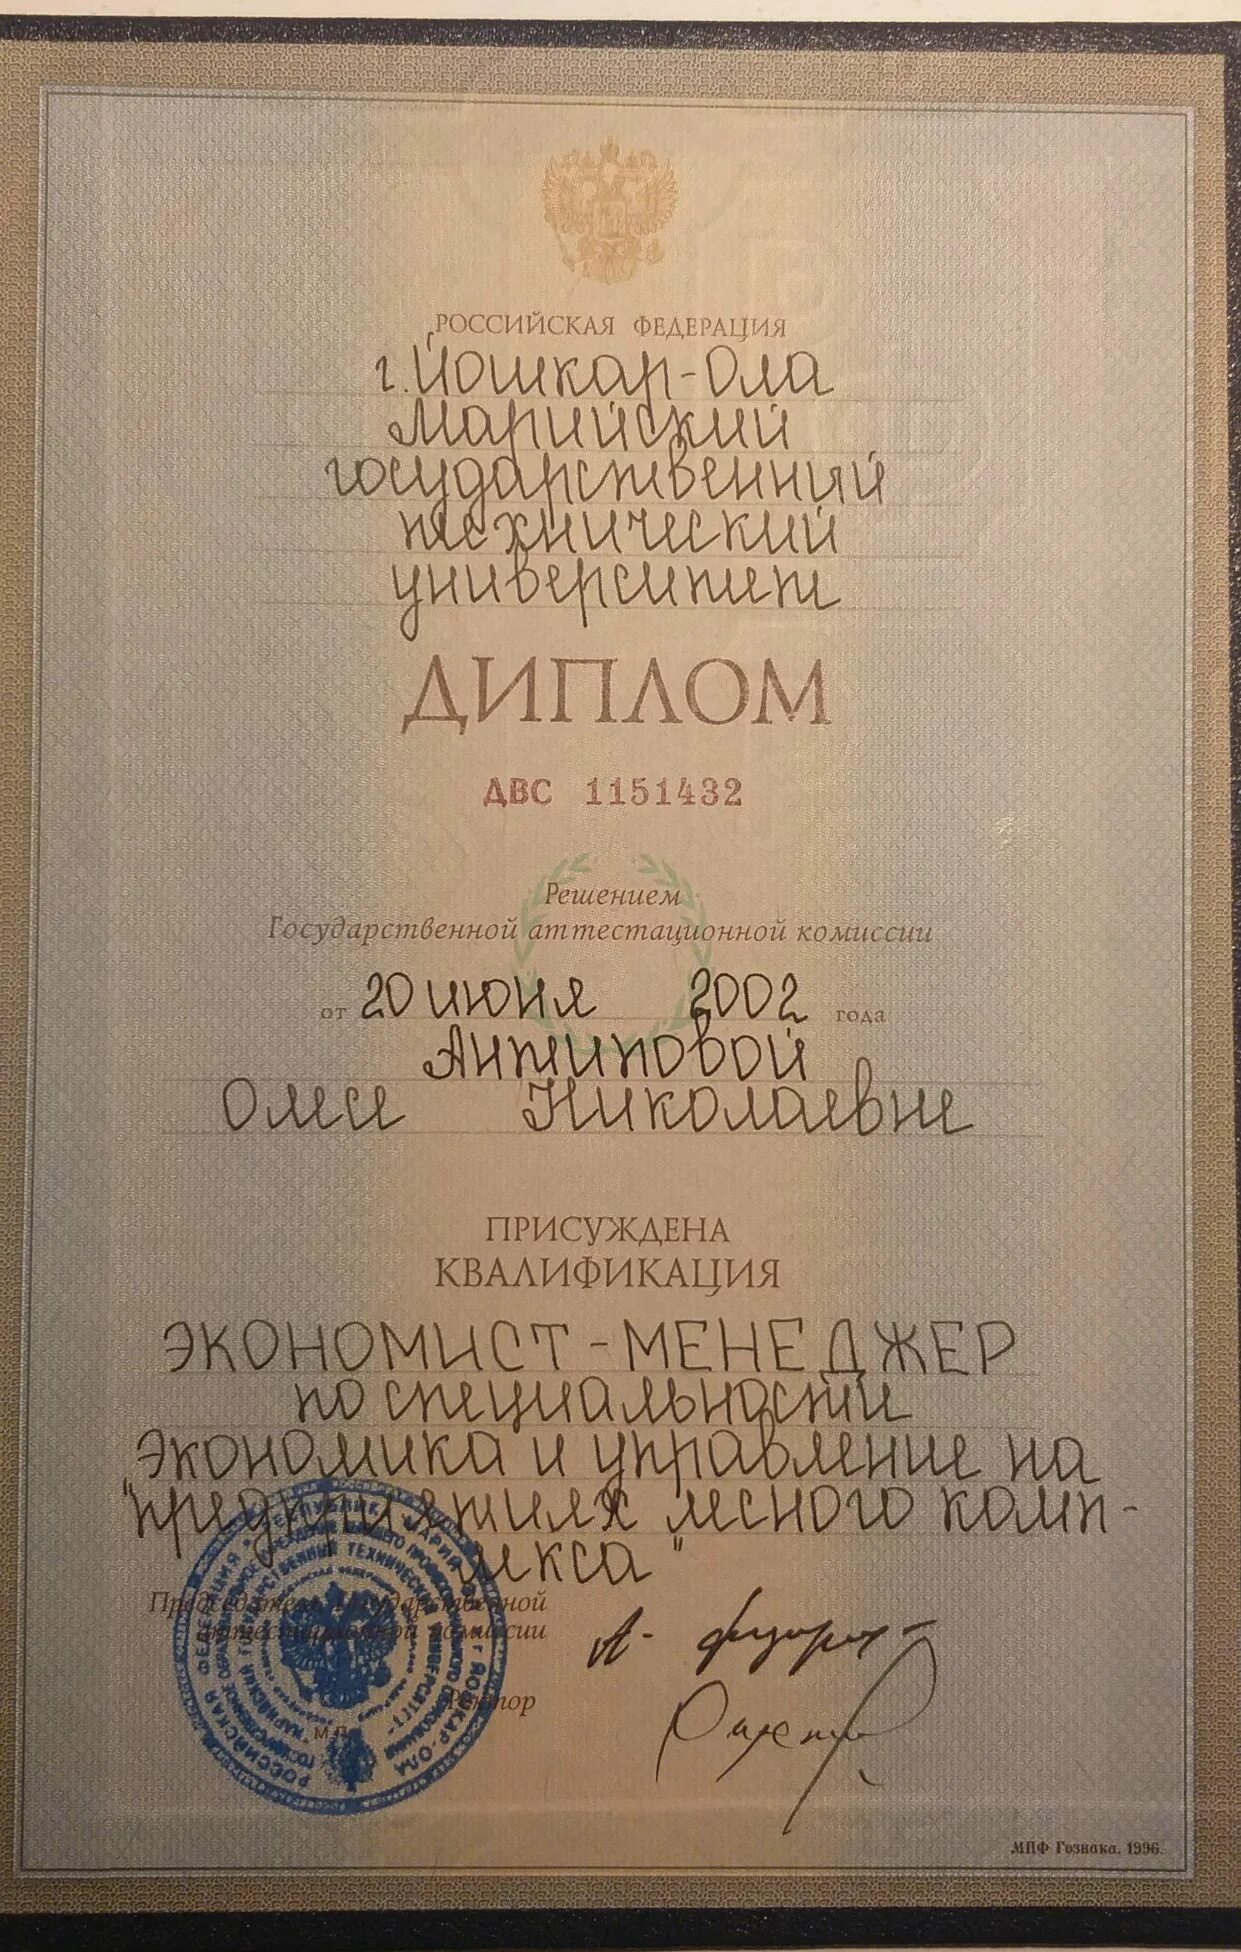 РОССИЙСКАЯ ФЕДЕРАЦИЯ
г. Йошкар-Ола
Марийский
государственный
технический
университет
ДИПЛОМ
ДВС 1151432
Решением
Государственной аттестационной комиссии
от 20 июня 2002 года
Антиповой
Олесе Николаевне
ПРИСУЖДЕНА
КВАЛИФИКАЦИЯ
ЭКОНОМИСТ-МЕНЕДЖЕР
по специальности
"Экономика и управление на
предприятиях лесного комп-
лекса"
Председатель Государственной
аттестационной комиссии
Ректор
М.П.
РОССИЙСКАЯ ФЕДЕРАЦИЯ
МПФ Гознака. 1996.